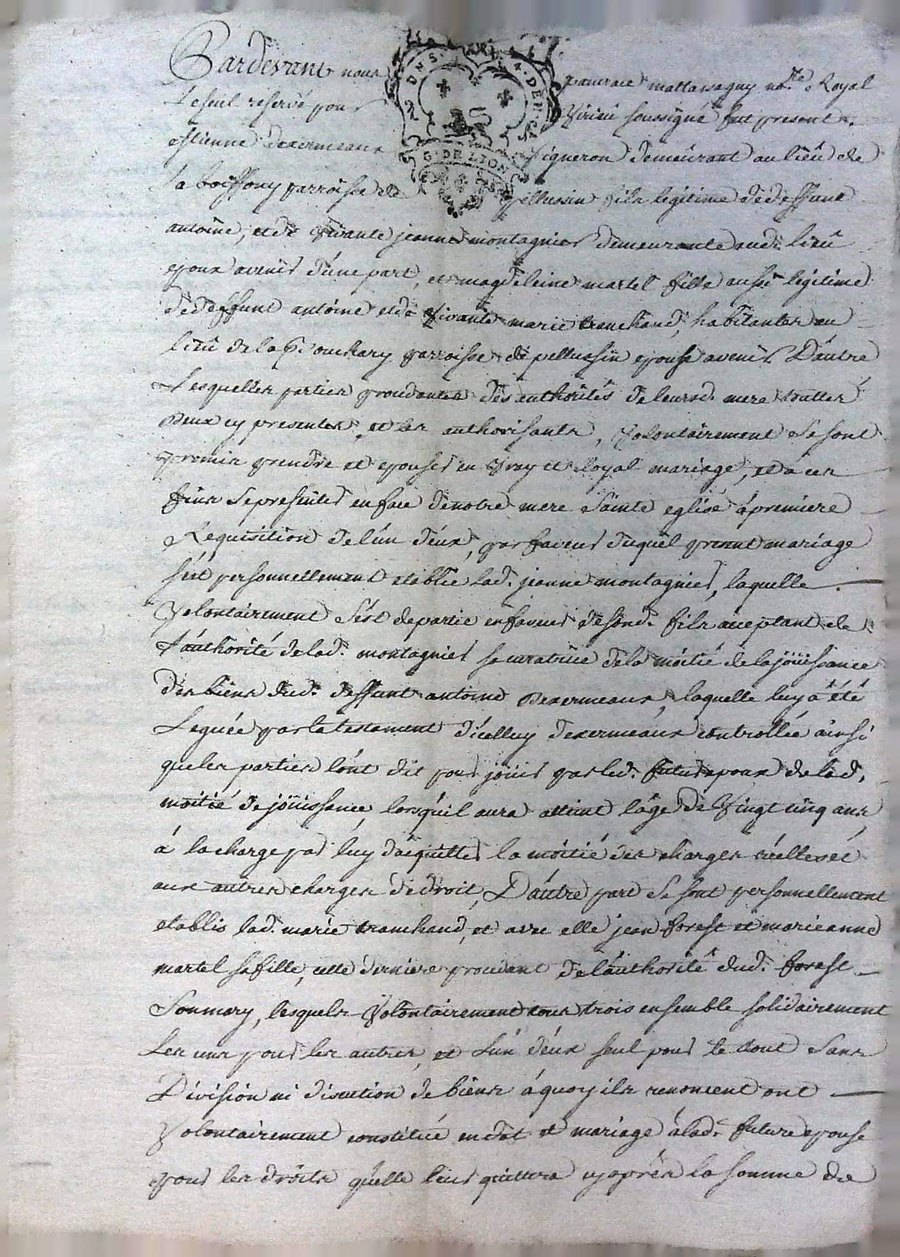 Pardevant nous mattaragny no.re Royal
Le seul reservé pour Virieu soussigné fut present
estienne dexermeaux Vigneron demeurant au lieu de
la paroisse de pellussin fils legitime de deffunt
antoine, et de vivante jeanne montagnier demeurante aud. lieu
epoux avenir d'une part, et magdeleine martel fille aussi legitime
de deffunt antoine et de vivante marie tranchand, habitantes au
lieu de la parroisse de pellussin epouse avenir D'autre
Lesquelles parties procedantes des authorités de leursd. mere toutes
deux cy presentes, et les authorisants, volontairement se sont
promis prendre et epouser en vray et loyal mariage, et a ces
fins se presenter en face de notre mere sainte eglise á premiere
Requisition de l'un d'eux, par faveur duquel present mariage
s'est personnellement etablie lad. jeanne montagnier, laquelle
volontairement s'est departie en faveur de sond. fils acceptant de
l'authorité de lad. montagnier sa curatrice de la moitié de la joüissance
des biens dud. deffunt antoine dexermeaux, laquelle luy á été
Leguée par le testament d'icelluy dexermeaux controllée ainsi
que les parties l'ont dit pour joüir par led. futur epoux de lad.
moitié de joüissance, lorsqu'il aura atteint l'âge de vingt cinq ans
á la charge par luy d'acquitter la moitié des charges réelles et
aux autres charges de droit, D'autre part se sont personnellement
etablis lad. marie tranchand, et avec elle jean forest et marieanne
martel sa fille, cette derniere procedant de l'authorité dud. forest
Son mary, lesquels volontairement tous trois ensemble solidairement
Les uns pour les autres, et l'un d'eux seul pour le tout sans
Division ni discution de biens á quoy ils renoncent ont
volontairement constitué en dot et mariage á lad. future epouse
pour les droits qu'elle leur quittera cy aprés la somme de
G. DE LYON